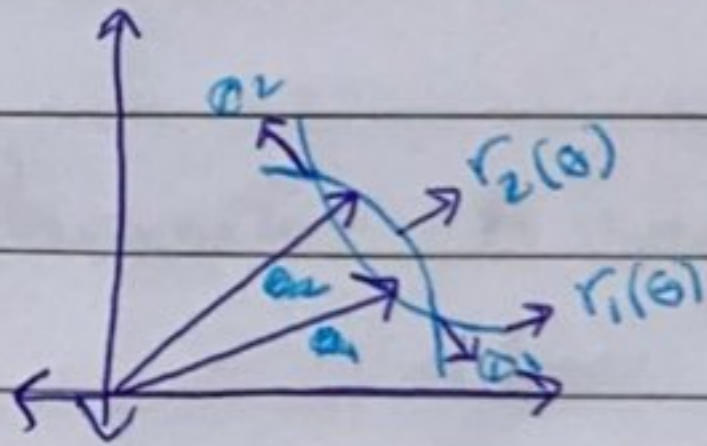 θ2
r₂(θ)
r₁(θ)
θ2
θ₁